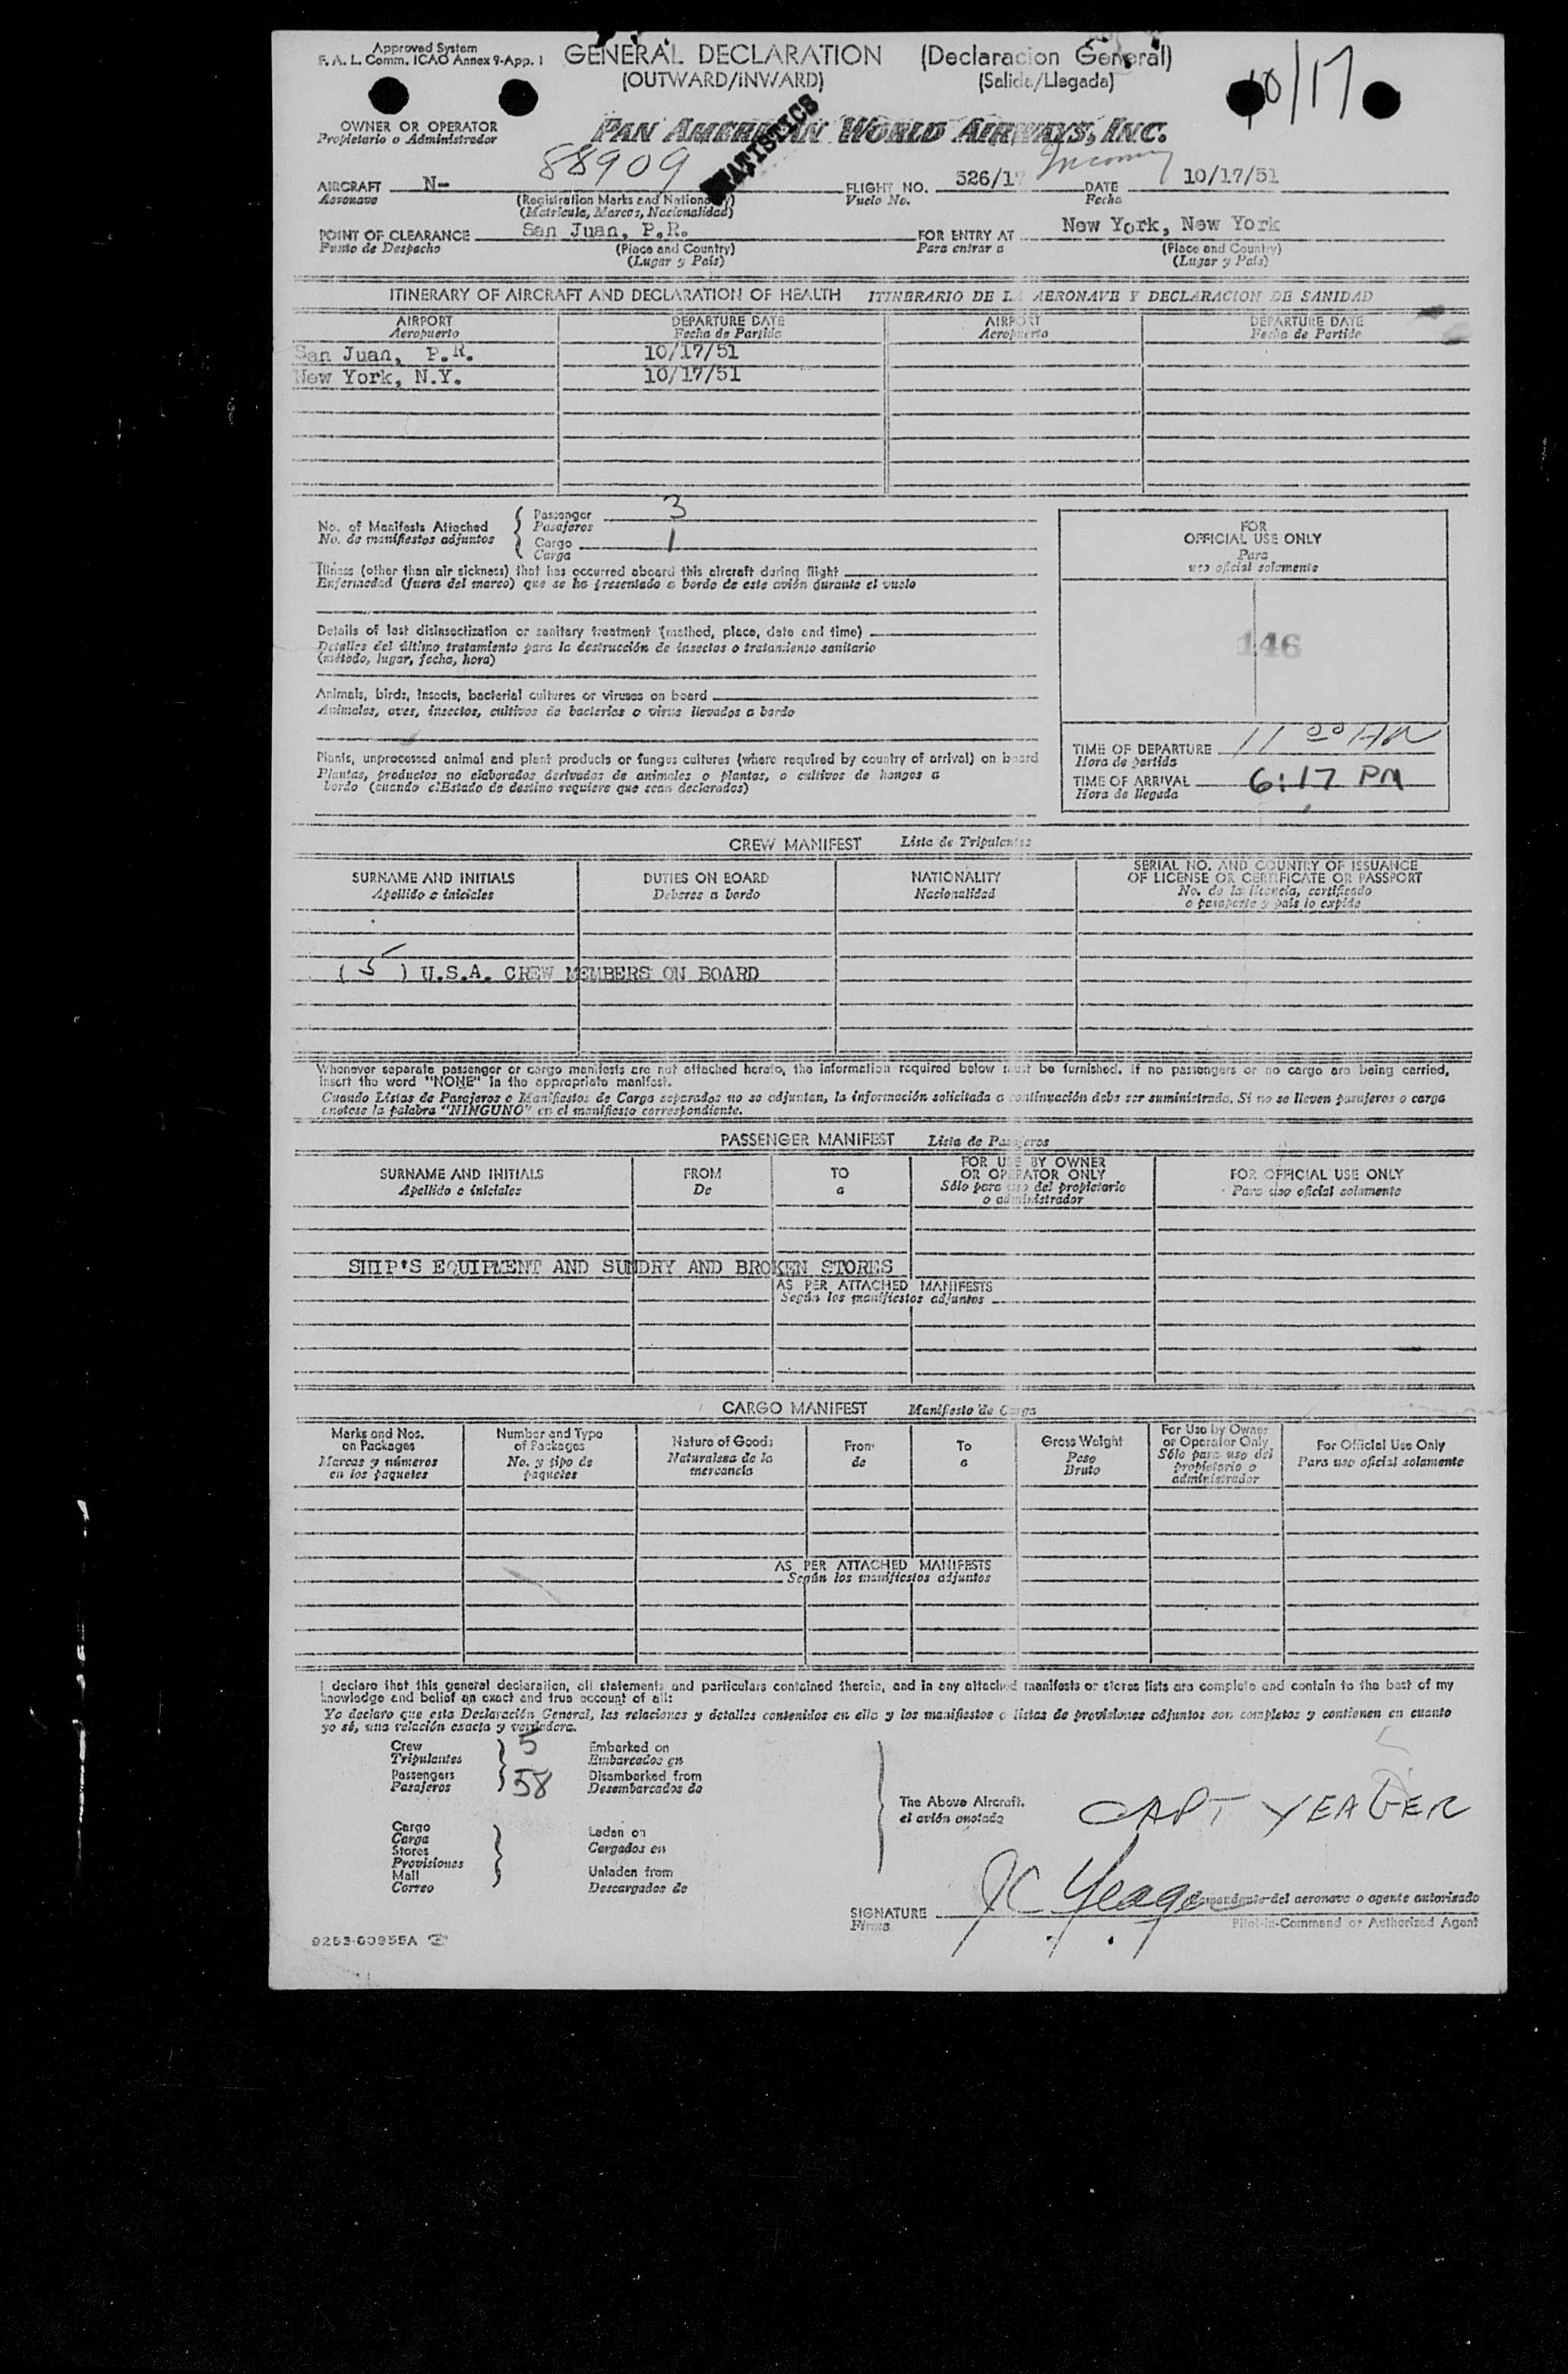 Approved System
F. A. L. Comm. ICAO Annex 9-App. I
GENERAL DECLARATION (Declaracion General)
(OUTWARD/INWARD) (Salida/Llegada)
10/17
OWNER OR OPERATOR
Propietario o Administrador
PAN AMERICAN WORLD AIRWAYS, INC.
STATISTICS
Incoming
AIRCRAFT N- 88909 FLIGHT NO. 526/17 DATE 10/17/51
Aeronave (Registration Marks and Nationality) Vuelo No. Fecha
(Matricula, Marcas, Nacionalidad)
POINT OF CLEARANCE San Juan, P.R. FOR ENTRY AT New York, New York
Punto de Despacho (Place and Country) Para entrar a (Place and Country)
(Lugar y País) (Lugar y País)
ITINERARY OF AIRCRAFT AND DECLARATION OF HEALTH ITINERARIO DE LA AERONAVE Y DECLARACION DE SANIDAD
AIRPORT DEPARTURE DATE AIRPORT DEPARTURE DATE
Aeropuerto Fecha de Partida Aeropuerto Fecha de Partida
San Juan, P.R. 10/17/51
New York, N.Y. 10/17/51
No. of Manifests Attached
No. de manifiestos adjuntos
Passenger 3
Pasajeros
Cargo 1
Carga
Illness (other than air sickness) that has occurred aboard this aircraft during flight
Enfermedad (fuera del mareo) que se ha presentado a bordo de este avión durante el vuelo
Details of last disinsectization or sanitary treatment (method, place, date and time)
Detalles del último tratamiento para la destrucción de insectos o tratamiento sanitario
(método, lugar, fecha, hora)
Animals, birds, insects, bacterial cultures or viruses on board
Animales, aves, insectos, cultivos de bacterias o virus llevados a bordo
Plants, unprocessed animal and plant products or fungus cultures (where required by country of arrival) on board
Plantas, productos no elaborados derivados de animales o plantas, o cultivos de hongos a
bordo (cuando el Estado de destino requiere que sean declarados)
FOR
OFFICIAL USE ONLY
Para
uso oficial solamente
146
TIME OF DEPARTURE 11 00 AM
Hora de partida
TIME OF ARRIVAL 6:17 PM
Hora de llegada
CREW MANIFEST Lista de Tripulantes
SURNAME AND INITIALS DUTIES ON BOARD NATIONALITY SERIAL NO. AND COUNTRY OF ISSUANCE
OF LICENSE OR CERTIFICATE OR PASSPORT
Apellido e iniciales Deberes a bordo Nacionalidad No. de la licencia, certificado
o pasaporte y país lo expide
( 5 ) U.S.A. CREW MEMBERS ON BOARD
Whenever separate passenger or cargo manifests are not attached hereto, the information required below must be furnished. If no passengers or no cargo are being carried,
insert the word "NONE" in the appropriate manifest.
Cuando Listas de Pasajeros o Manifiestos de Carga separados no se adjuntan, la información solicitada a continuación debe ser suministrada. Si no se lleven pasajeros o carga
anotese la palabra "NINGUNO" en el manifiesto correspondiente.
PASSENGER MANIFEST Lista de Pasajeros
SURNAME AND INITIALS FROM TO FOR USE BY OWNER OR OPERATOR ONLY FOR OFFICIAL USE ONLY
Apellido e iniciales De a Sólo para uso del propietario o administrador Para uso oficial solamente
SHIP'S EQUIPMENT AND SUNDRY AND BROKEN STORES
AS PER ATTACHED MANIFESTS
Según los manifiestos adjuntos
CARGO MANIFEST Manifiesto de Carga
Marks and Nos. on Packages Number and Type of Packages Nature of Goods From To Gross Weight For Use by Owner or Operator Only For Official Use Only
Marcas y números en los paquetes No. y tipo de paquetes Naturalesa de la mercancía de a Peso Bruto Sólo para uso del propietario o administrador Para uso oficial solamente
AS PER ATTACHED MANIFESTS
Según los manifiestos adjuntos
I declare that this general declaration, all statements and particulars contained therein, and in any attached manifests or stores lists are complete and contain to the best of my
knowledge and belief an exact and true account of all:
Yo declaro que esta Declaración General, las relaciones y detalles contenidos en ella y los manifiestos o listas de provisiones adjuntos son completos y contienen en cuanto
yo sé, una relación exacta y verdadera.
Crew 5 Embarked on
Tripulantes Embarcados en
Passengers 58 Disembarked from
Pasajeros Desembarcados de
The Above Aircraft.
el avión anotado
CAPT YEAGER
Cargo
Carga
Stores
Provisiones
Mail
Correo
Laden on
Cargados en
Unladen from
Descargados de
SIGNATURE JC Yeager Comandante del aeronave o agente autorizado
Firma Pilot-in-Command or Authorized Agent
9263-60955A